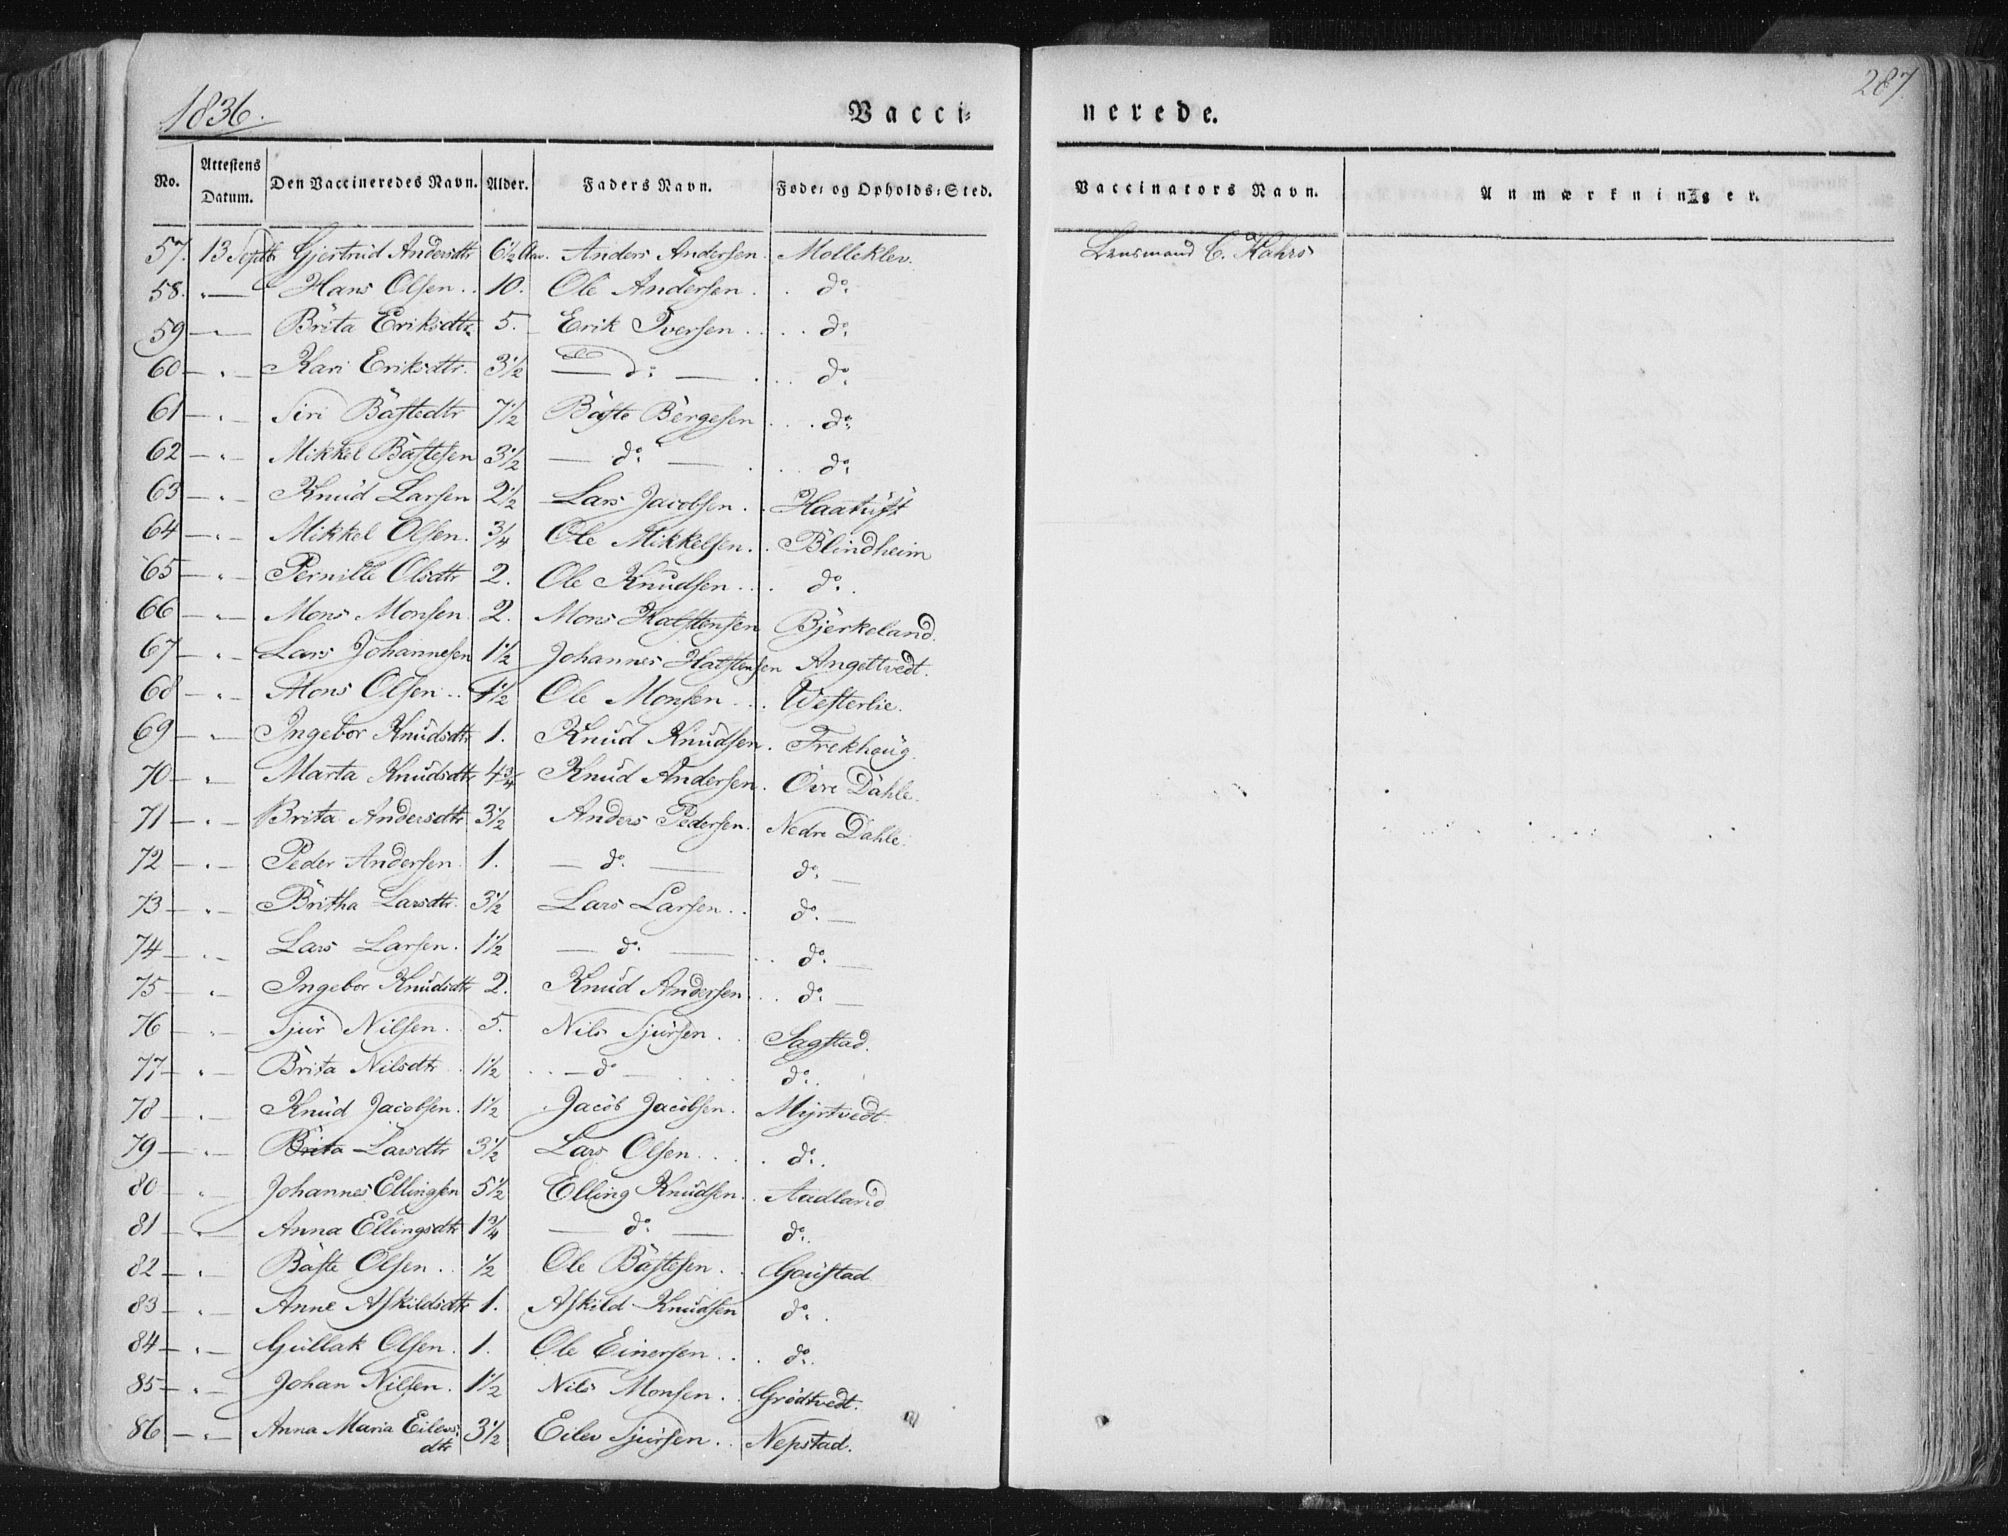 1836. Vacci- nerede. 287.
No. Attestens Datum. Den Vaccineredes Navn. Alder. Faders Navn. Føde- og Opholds-Sted. Vaccinators Navn. Anmærkninger.
57. 13 Septbr Gjertrud Andersdtr 6½ Aar. Anders Andersen. Molleklev. Lensmand C. Kahrs
58. — " — Hans Olsen .. 10. Ole Andersen . . do.
59 — " — Brita Eriksdtr. 5. Erik Iversen . . . . do.
60 — " — Kari Eriksdtr. 3½ — do. — . . . do.
61 — " — Siri Bastedtr 7½ Baste Børgesen . . . do.
62 — " — Mikkel Bastesen 3½ — do. — . . . do.
63 — " — Knud Larsen 2½ Lars Jacobsen . . Haatuft
64 — " — Mikkel Olsen. ¾ Ole Mikkelsen. . Blindheim
65 — " — Pernille Olsdtr 2. Ole Knudsen . . . do. .
66 — " — Mons Monsen 2. Mons Halstensen Bjerkeland.
67 — " — Lars Johannesen 1½ Johannes Halstensen Angeltvedt.
68 — " — Mons Olsen .. 1½ Ole Monsen . . . Westerlie.
69 — " — Ingebor Knudsdtr 1. Knud Knudsen . Frekhaug.
70 — " — Marta Knudsdtr 4¾ Knud Andersen . Övre Dahle.
71 — " — Brita Andersdtr 3½ Anders Pedersen. Nedre Dahle.
72 — " — Peder Andersen. 1. — do. — do. —
73 — " — Britha Larsdtr. 3½ Lars Larsen . . do. —
74 — " — Lars Larsen. 1½ — do. — . . do. —
75 — " — Ingebor Knudsdtr 2. Knud Andersen . . . do. —
76 — " Sjur Nilsen . . 5. Nils Sjursen . . Sagstad.
77 — " — Brita Nilsdtr . 1½ . . — do — . . do. .
78 — " — Knud Jacobsen. 1½ Jacob Jacobsen. Myrtvedt.
79 — " — Brita Larsdtr 3½ Lars Olsen . . . . do. .
80 — " — Johannes Ellingsen 5½ Elling Knudsen. . Aadland
81 — " — Anna Ellingsdtr 1¾ — do. — do. .
82 — " — Baste Olsen .. ½ Ole Bastesen . . Gaustad
83 — " — Anne Askildsdtr 1. Askild Knudsen do. .
84 — " — Gullak Olsen. 1. Ole Einersen . . . do. .
85 — " — Johan Nilsen. 1½ Nils Monsen . . Grødtvedt.
86 — " — Anna Maria Eilevs-
dtr 3½ Eilev Sjursen . . Nepstad.